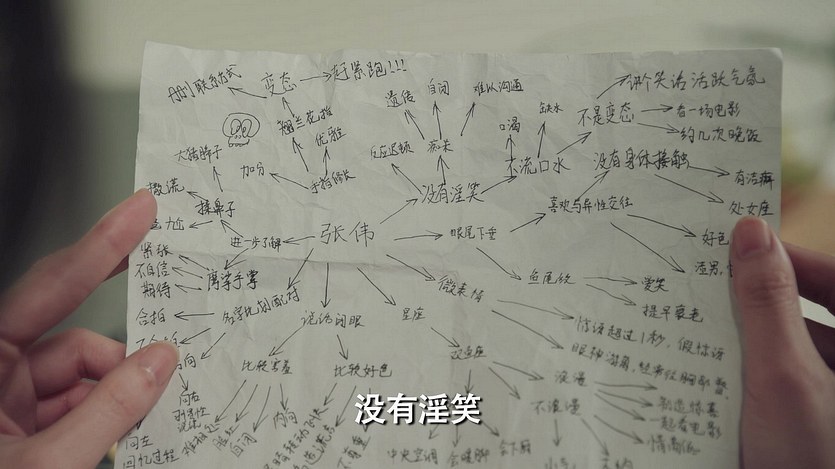 删联系方式
变态
赶紧跑!!!
翘兰花指
优雅
手指修长
加分
大猪蹄子
撒谎
摸鼻子
尴尬
进一步了解
紧张
不自信
期待
摩挲手掌
合拍
名字比划配对
张伟
遗传
自闭
难以沟通
反应迟顿
痴呆
没有淫笑
口渴
缺水
不流口水
不是变态
讲个笑话活跃气氛
看一场电影
约几次晚饭
没有身体接触
有洁癖
处女座
喜欢与异性交往
好色
渣男
眼尾下垂
鱼尾纹
爱笑
提早衰老
微表情
对视超过1秒,假惊讶
眼神游离
说话闭眼
比较害羞
比较好色
星座
双鱼座
浪漫
不浪漫
制造惊喜
一起看电影
情商低
向左
回忆过程
向右
脸红
自闭
中央空调
会暖脚
会下厨
没有淫笑